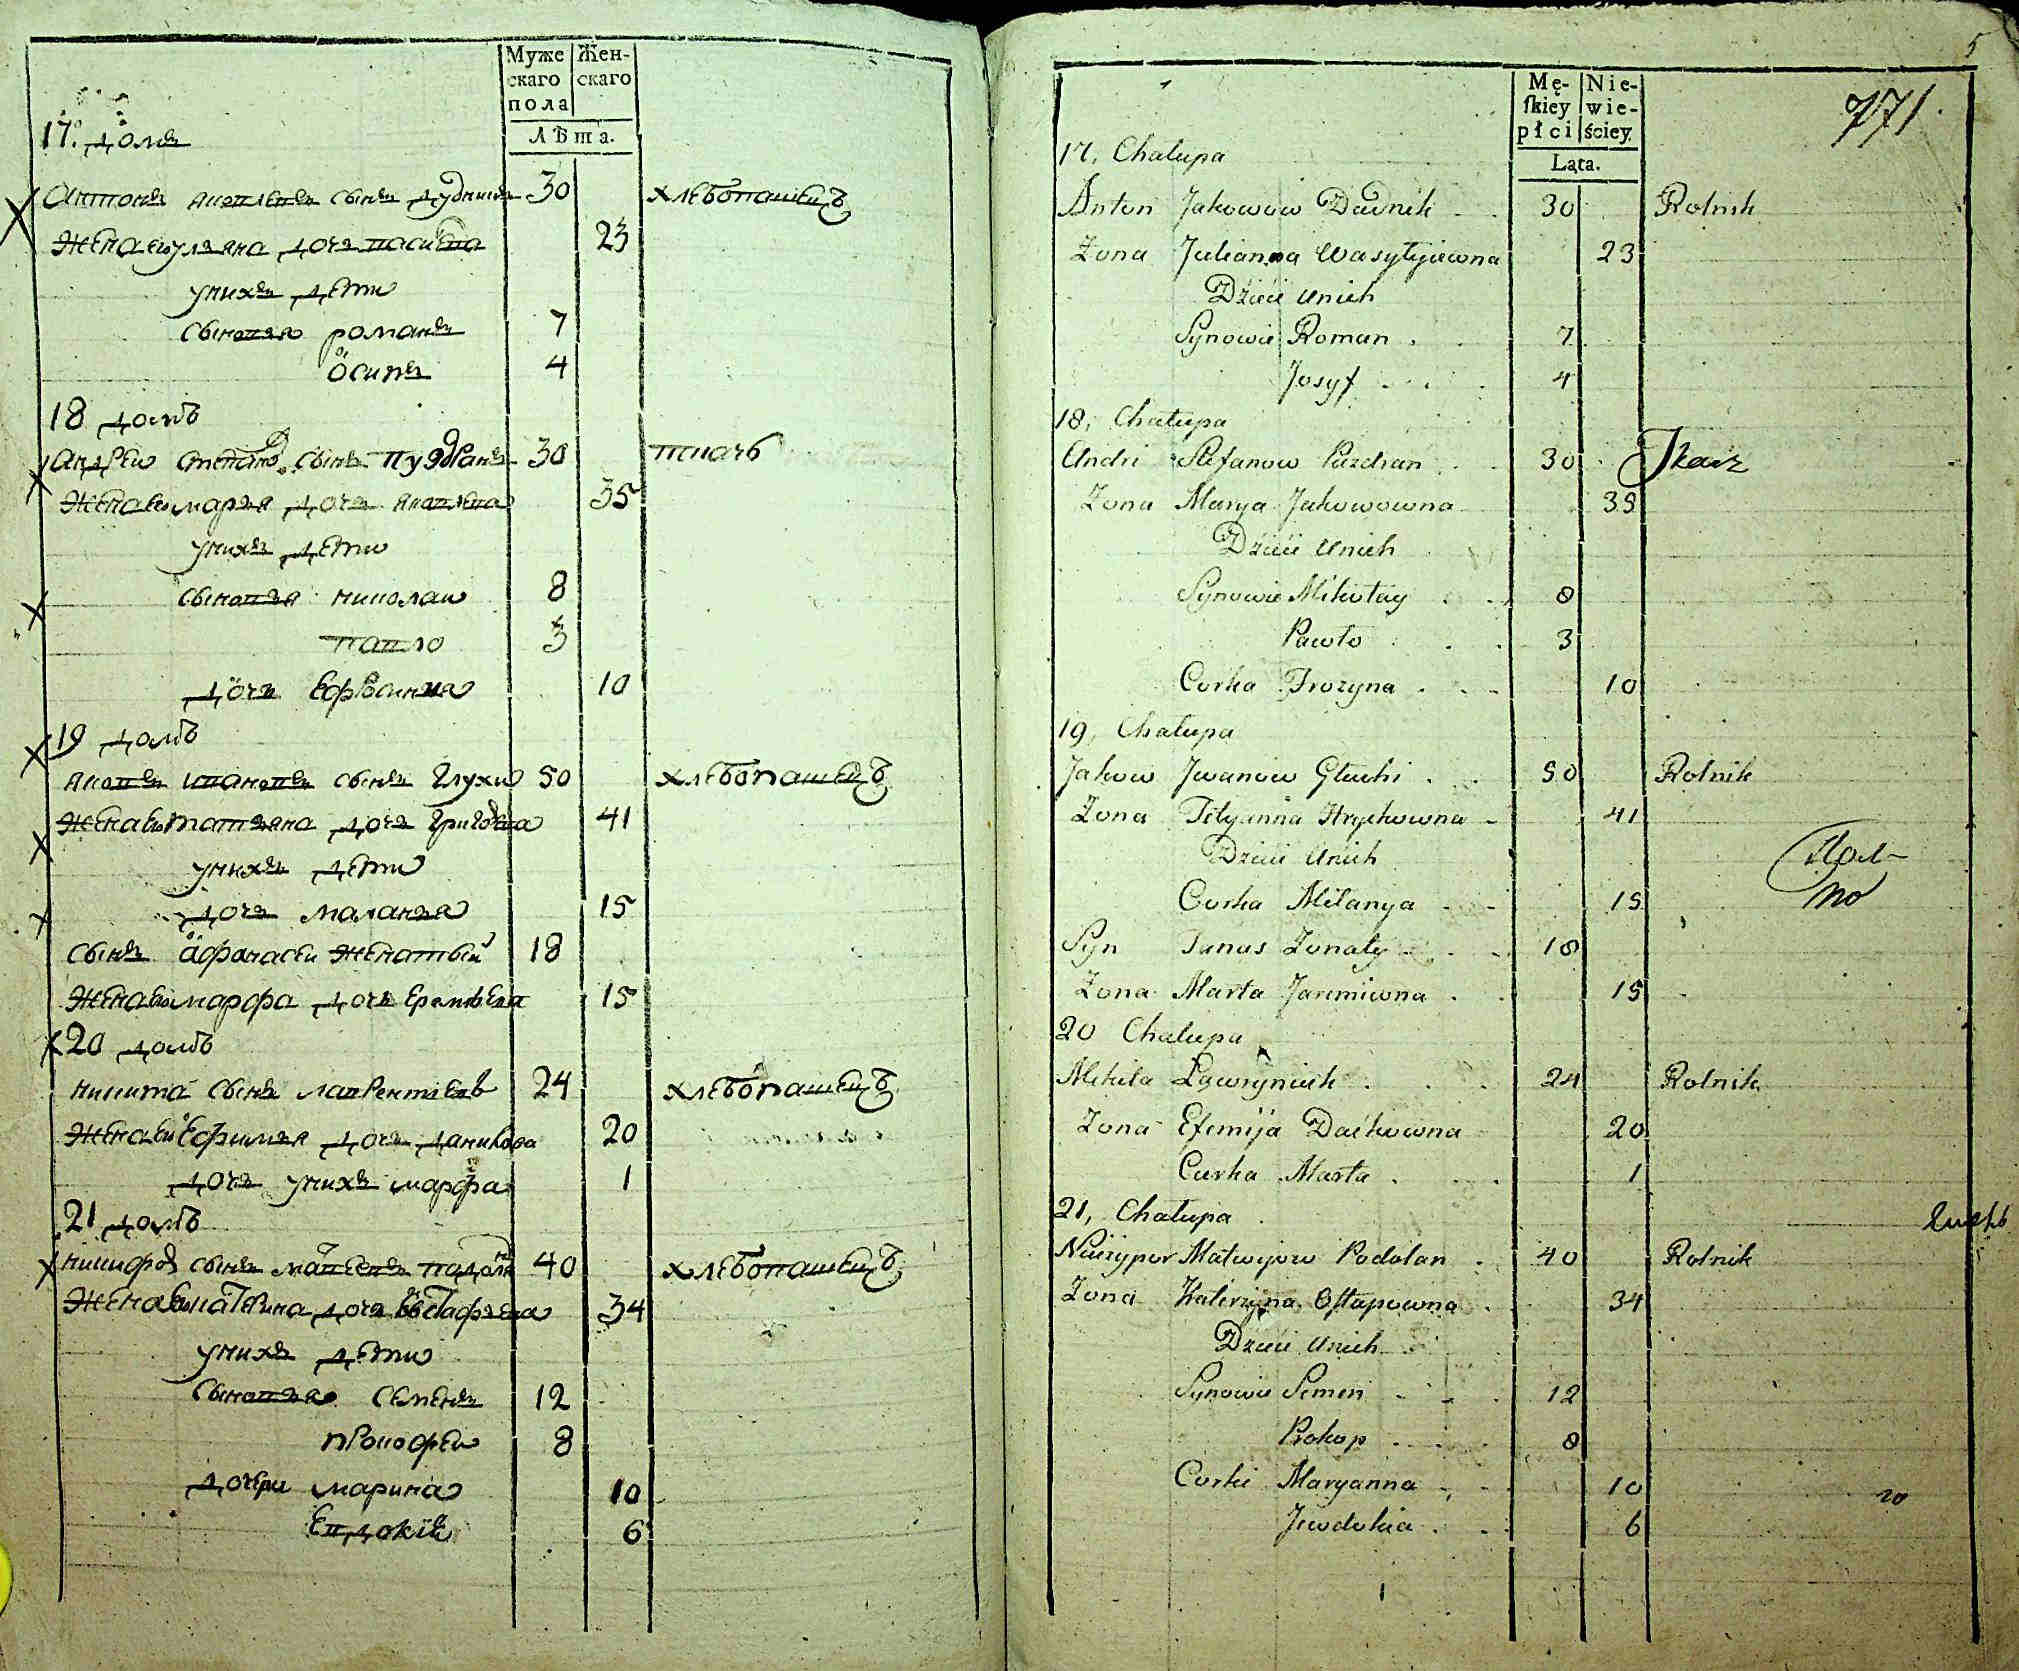 Муже Жен-
скаго скаго
пола
Лѣта.
17. домъ
Антонъ Яковлевъ сынъ Дудникъ 30 хлебопашецъ
Жена ево улѣяна дочь васи 23
унихъ дети
сыновья романъ 7
осипъ 4
18 домъ
Андреи степано. сынъ пуздранъ 30 ткачь
Жена ево марья дочь яковлева 35
унихъ дети
сыновья николаи 8
павло 3
дочь ефросинья 10
19 домъ
яковъ ивановъ сынъ глухи 50 хлебопашецъ
Жена ево татьяна дочь григорева 41
унихъ дети
дочь маланья 15
сынъ афанасеи женатый 18
Жена ево марфа дочь еремеева 15
20 домъ
никита сынъ лаврентьевъ 24 хлебопашецъ
Жена ево ефимья дочь данилова 20
дочь унихъ марфа 1
21 домъ
никифоръ сынъ матвеевъ 40 хлебопашецъ
Жена ево катерина дочь евстафьева 34
унихъ дети
сыновья семенъ 12
прокофеи 8
дочери марина 10
евдокія 6
5
Mę- Nie-
ſkiey wie-
płci ściey.
Lata.
771.
17, Chałupa
Anton Jakowow Dudnik 30 Rolnik
Zona Julianna Wasylijewna 23
Dzieci unich
Synowie Roman 7
Josyf 4
18, Chałupa
Andri Stefanow Puzdran 30 Tkacz
Zona Marya Jakowowna 35
Dzieci unich
Synowie Mikołay 8
Pawło 3
Corka Frozyna 10
19, Chałupa
Jakow Jwanow Głuchi 50 Rolnik
Zona Tetyanna Hryckowna 41
Dzieci unich
Corka Mełanya 15
Syn Panas Zonaty 18
Zona Marta Jaremiwna 15
20 Chałupa
Mikita Ławryniuk 24 Rolnik
Zona Efemija Dackowna 20
Corka Marta 1
21, Chałupa
Niczypor Matwijow Podolan 40 Rolnik
Zona Katerzyna Ostapowna 34
Dzieci unich
Synowie Semen 12
Prokop 8
Corki Maryanna 10
Jewdokia 6